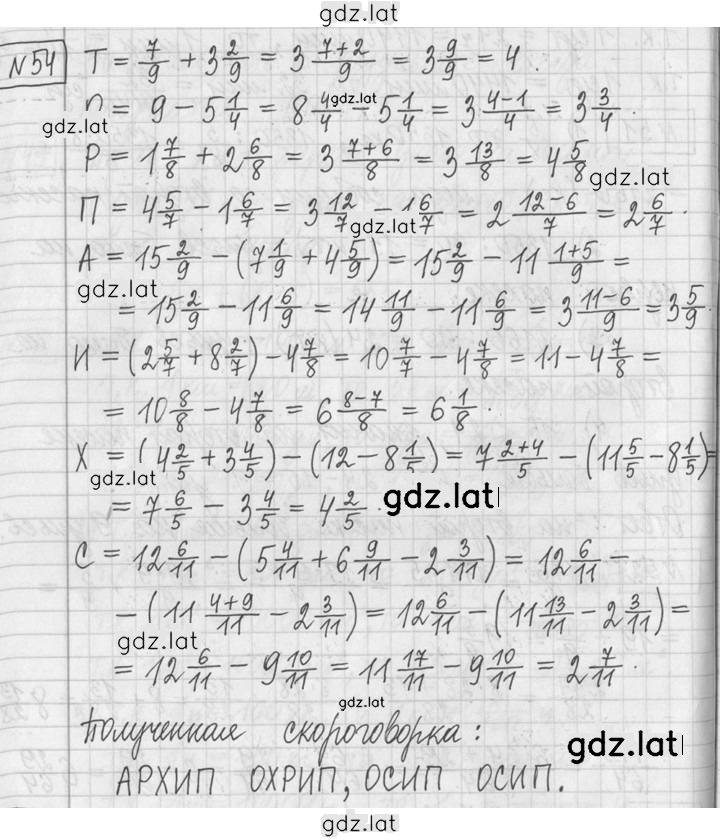 gdz.lat
№54 Т = 7/9 + 3 2/9 = 3 (7+2)/9 = 3 9/9 = 4.
= 9 − 5 1/4 = 8 4/4 − 5 1/4 = 3 (4−1)/4 = 3 3/4.
gdz.lat
gdz.lat
Р = 1 7/8 + 2 6/8 = 3 (7+6)/8 = 3 13/8 = 4 5/8
gdz.lat
П = 4 5/7 − 1 6/7 = 3 12/7 − 1 6/7 = 2 (12−6)/7 = 2 6/7.
gdz.lat
А = 15 2/9 − (7 1/9 + 4 5/9) = 15 2/9 − 11 (1+5)/9 =
gdz.lat
= 15 2/9 − 11 6/9 = 14 11/9 − 11 6/9 = 3 (11−6)/9 = 3 5/9.
И = (2 5/7 + 8 2/7) − 4 7/8 = 10 7/7 − 4 7/8 = 11 − 4 7/8 =
= 10 8/8 − 4 7/8 = 6 (8−7)/8 = 6 1/8.
Х = (4 2/5 + 3 4/5) − (12 − 8 1/5) = 7 (2+4)/5 − (11 5/5 − 8 1/5) =
gdz.lat
= 7 6/5 − 3 4/5 = 4 2/5.
gdz.lat
С = 12 6/11 − (5 4/11 + 6 9/11 − 2 3/11) = 12 6/11 −
− (11 (4+9)/11 − 2 3/11) = 12 6/11 − (11 13/11 − 2 3/11) =
gdz.lat
= 12 6/11 − 9 10/11 = 11 17/11 − 9 10/11 = 2 7/11.
gdz.lat
Полученная скороговорка:
gdz.lat
АРХИП ОХРИП, ОСИП ОСИП.
gdz.lat